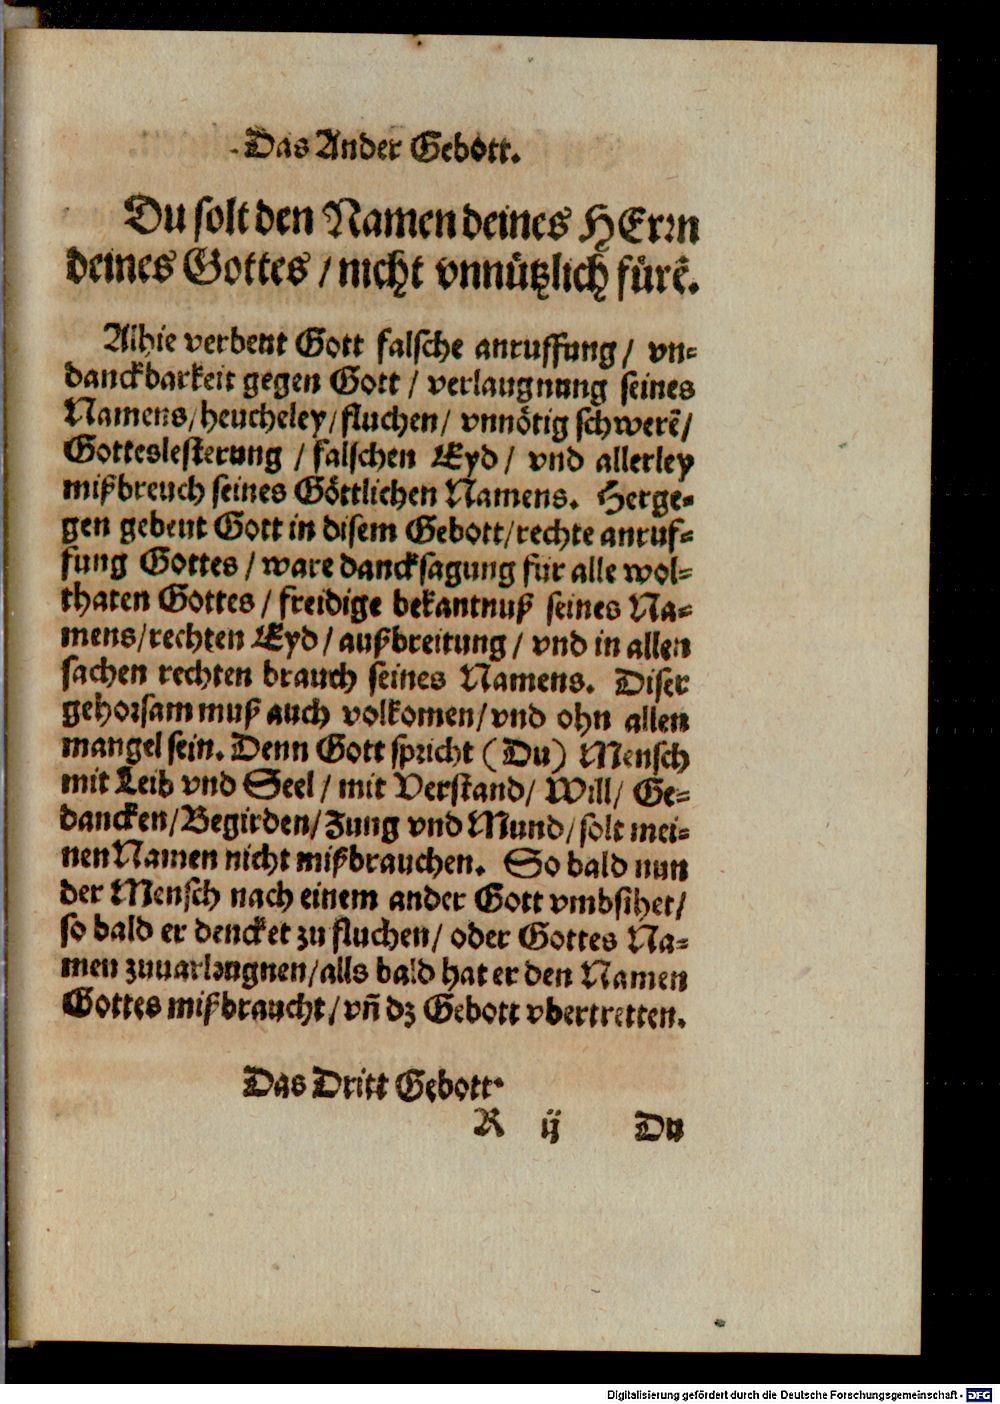 Das Ander Gebott.
Du solt den Namen deines HErꝛn
deines Gottes / nicht vnnützlich fürẽ.
Alhie verbeut Gott falsche anruffung / vn-
danckbarkeit gegen Gott / verlaugnung seines
Namens / heucheley / fluchen / vnnötig schwerẽ /
Gotteslesterung / falschen Eyd / vnd allerley
mißbreuch seines Göttlichen Namens. Herge-
gen gebeut Gott in disem Gebott / rechte anruf-
fung Gottes / ware dancksagung für alle wol-
thaten Gottes / freidige bekantnuß seines Na-
mens / rechten Eyd / außbreitung / vnd in allen
sachen rechten brauch seines Namens. Diser
gehoꝛsam muß auch volkomen / vnd ohn allen
mangel sein. Denn Gott spricht (Du) Mensch
mit Leib vnd Seel / mit Verstand / Will / Ge-
dancken / Begirden / Zung vnd Mund / solt mei-
nen Namen nicht mißbrauchen. So bald nun
der Mensch nach einem ander Gott vmbsihet /
so bald er dencket zu fluchen / oder Gottes Na-
men zuuarlaugnen / alls bald hat er den Namen
Gottes mißbraucht / vñ dz Gebott vbertretten.
Das Dritt Gebott.
R ij Du
Digitalisierung gefördert durch die Deutsche Forschungsgemeinschaft - DFG